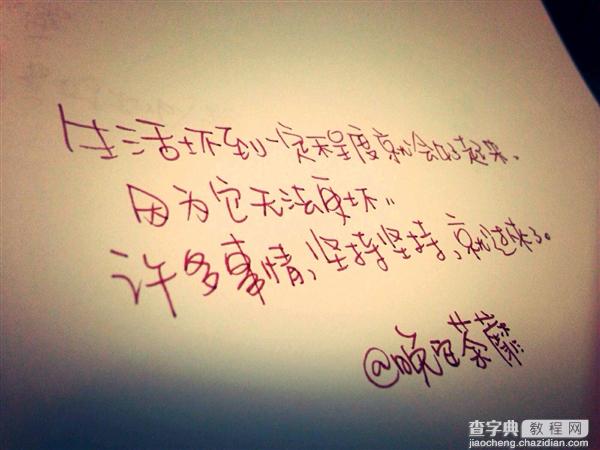 生活坏到一定程度就会好起来、
因为它无法更坏..
许多事情、坚持坚持、就过来了。
@晚安
查字典 教程网
jiaocheng.chazidian.com